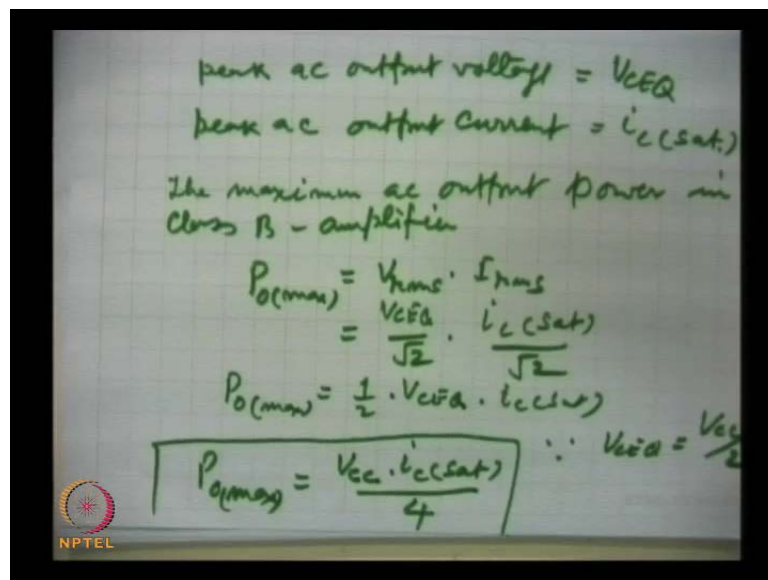 peak ac output voltage = VCEQ
peak ac output current = ic(sat.)
The maximum ac output power in
class B - amplifier
Po(max) = Vrms . Irms
= VCEQ/√2 . ic(sat)/√2
Po(max) = 1/2 . VCEQ . ic(sat)
Po(max) = VCC . ic(sat)/4 ∵ VCEQ = VCC/2
NPTEL